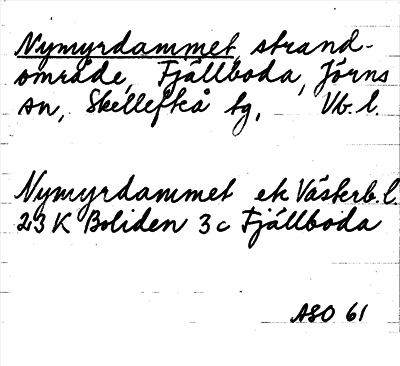 Nymyrdammet, strand-
område, Fjällboda, Jörns
sn, Skellefteå tg, Vb. l.
Nymyrdammet ek Västerb. l.
23 K Boliden 3 c Fjällboda
ASO 61